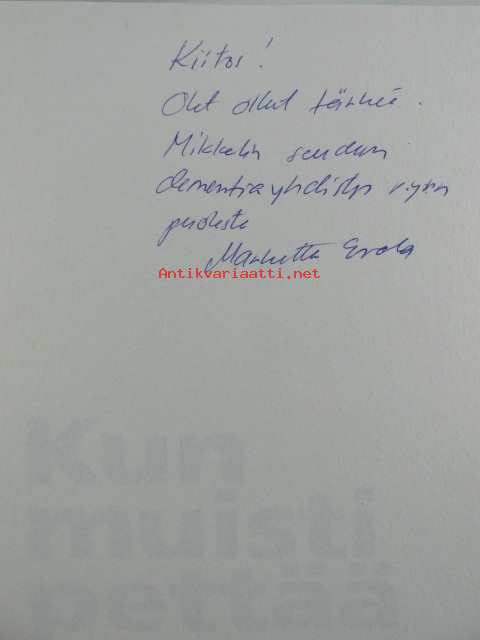 Kiitos!
Olet ollut tärkeä.
Mikkelin seudun
dementiayhdistys r.y:n
puolesta
Marketta
Antikvariaatti.net
Kun
muisti
pettää